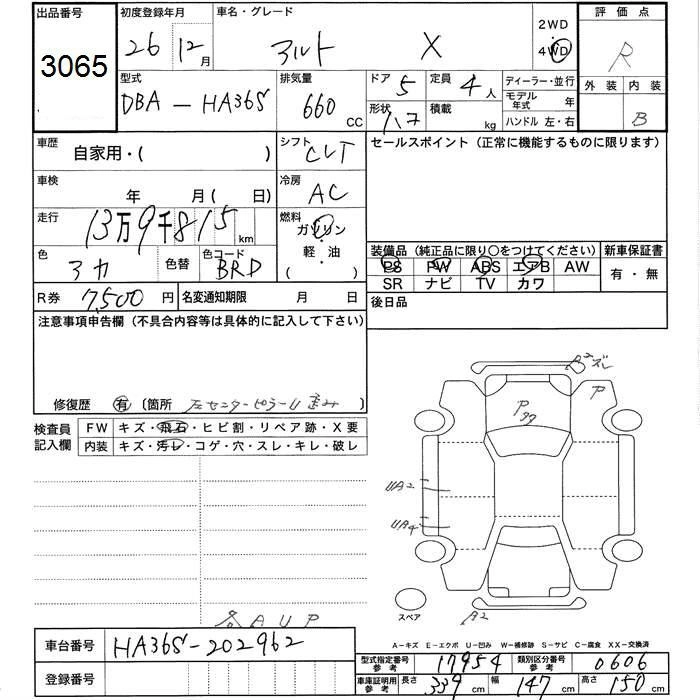 出品番号
3065
初度登録年月
26 12月
車名・グレード
アルト X
2WD
4WD
評価点
R
外装 内装
B
型式
DBA - HA36S
排気量
660 cc
ドア 5
形状 ハコ
定員 4人
積載 kg
ディーラー・並行
モデル年式 年
ハンドル 左・右
車歴
自家用・( )
シフト CVT
セールスポイント (正常に機能するものに限ります)
車検
年 月( 日)
冷房 AC
走行 13万9千815km
燃料
ガソリン
・軽・油
( )
色
アカ
色替
色コード
BRD
装備品 (純正品に限り○をつけてください)
PS PW ABS エアB AW
SR ナビ TV カワ
新車保証書
有・無
R券 7,500円
名変通知期限 月 日
後日品
注意事項申告欄 (不具合内容等は具体的に記入して下さい)
修復歴 有 〔箇所 左センターピラーU 歪み 〕
検査員記入欄
FW キズ・飛石・ヒビ割・リペア跡・X要
内装 キズ・汚レ・コゲ・穴・スレ・キレ・破レ
各AUP
A2ズレ
P
P
UA2
UA4
A2
スペア
A-キズ E-エクボ U-凹み W-補修跡 S-サビ C-腐食 XX-交換済
車台番号 HA36S-202962
登録番号
型式指定番号 参考 17954
類別区分番号 参考 0606
車庫証明用 参考 長さ 339cm 幅 147cm 高さ 150cm